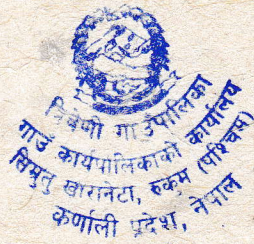 त्रिवेणी गाउँपालिका
गाउँ कार्यपालिकाको कार्यालय
सिम्रुतु खारानेटा, रुकुम (पश्चिम)
कर्णाली प्रदेश, नेपाल